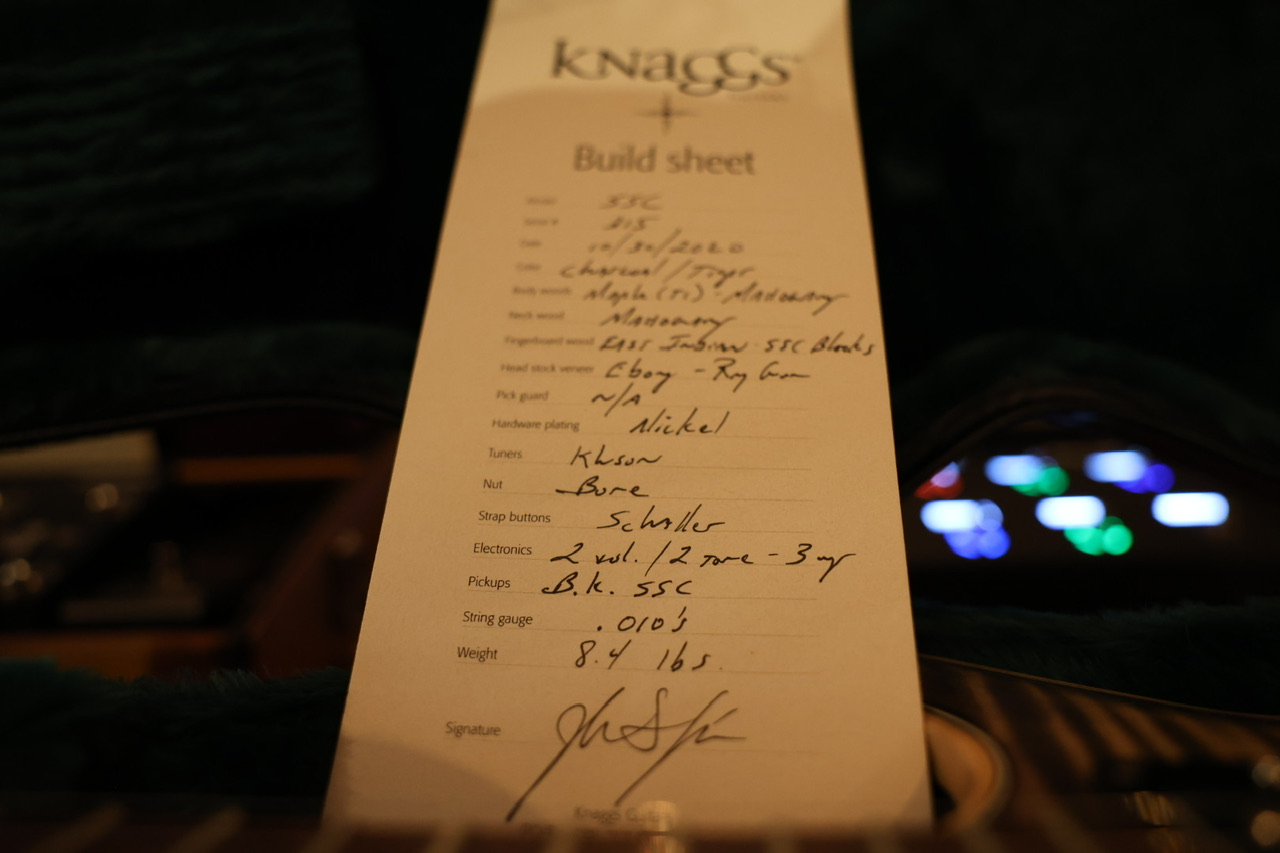 KNaGGs
Build sheet
Model SSC
Serial # 215
Date 10/30/2020
Color Charcoal / Tiger
Body woods Maple (T1) - Mahogany
Neck wood Mahogany
Fingerboard wood East Indian - SSC Blocks
Head stock veneer Ebony -
Pick guard N/A
Hardware plating Nickel
Tuners Kluson
Nut Bone
Strap buttons Schaller
Electronics 2 vol. / 2 Tone - 3 way
Pickups B.K. SSC
String gauge .010's
Weight 8.4 lbs.
Signature
Knaggs